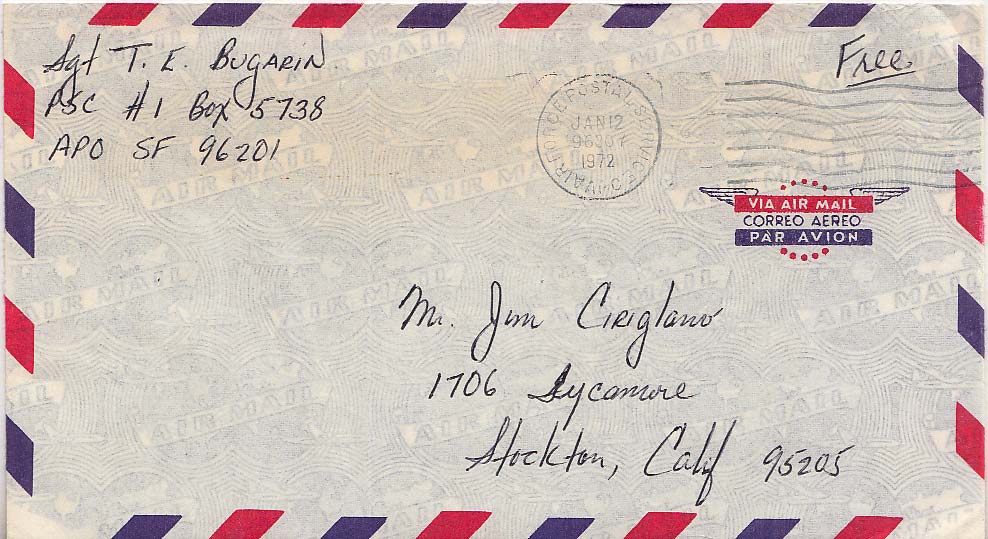 Sgt T. E. Bugarin
PSC #1 Box 5738
APO SF 96201
Free
AIR FORCE POSTAL SERVICE
JAN 12
1972
VIA AIR MAIL
CORREO AEREO
PAR AVION
Mr. Jim Ciriglano
1706 Sycamore
Stockton, Calif 95205
AIR MAIL